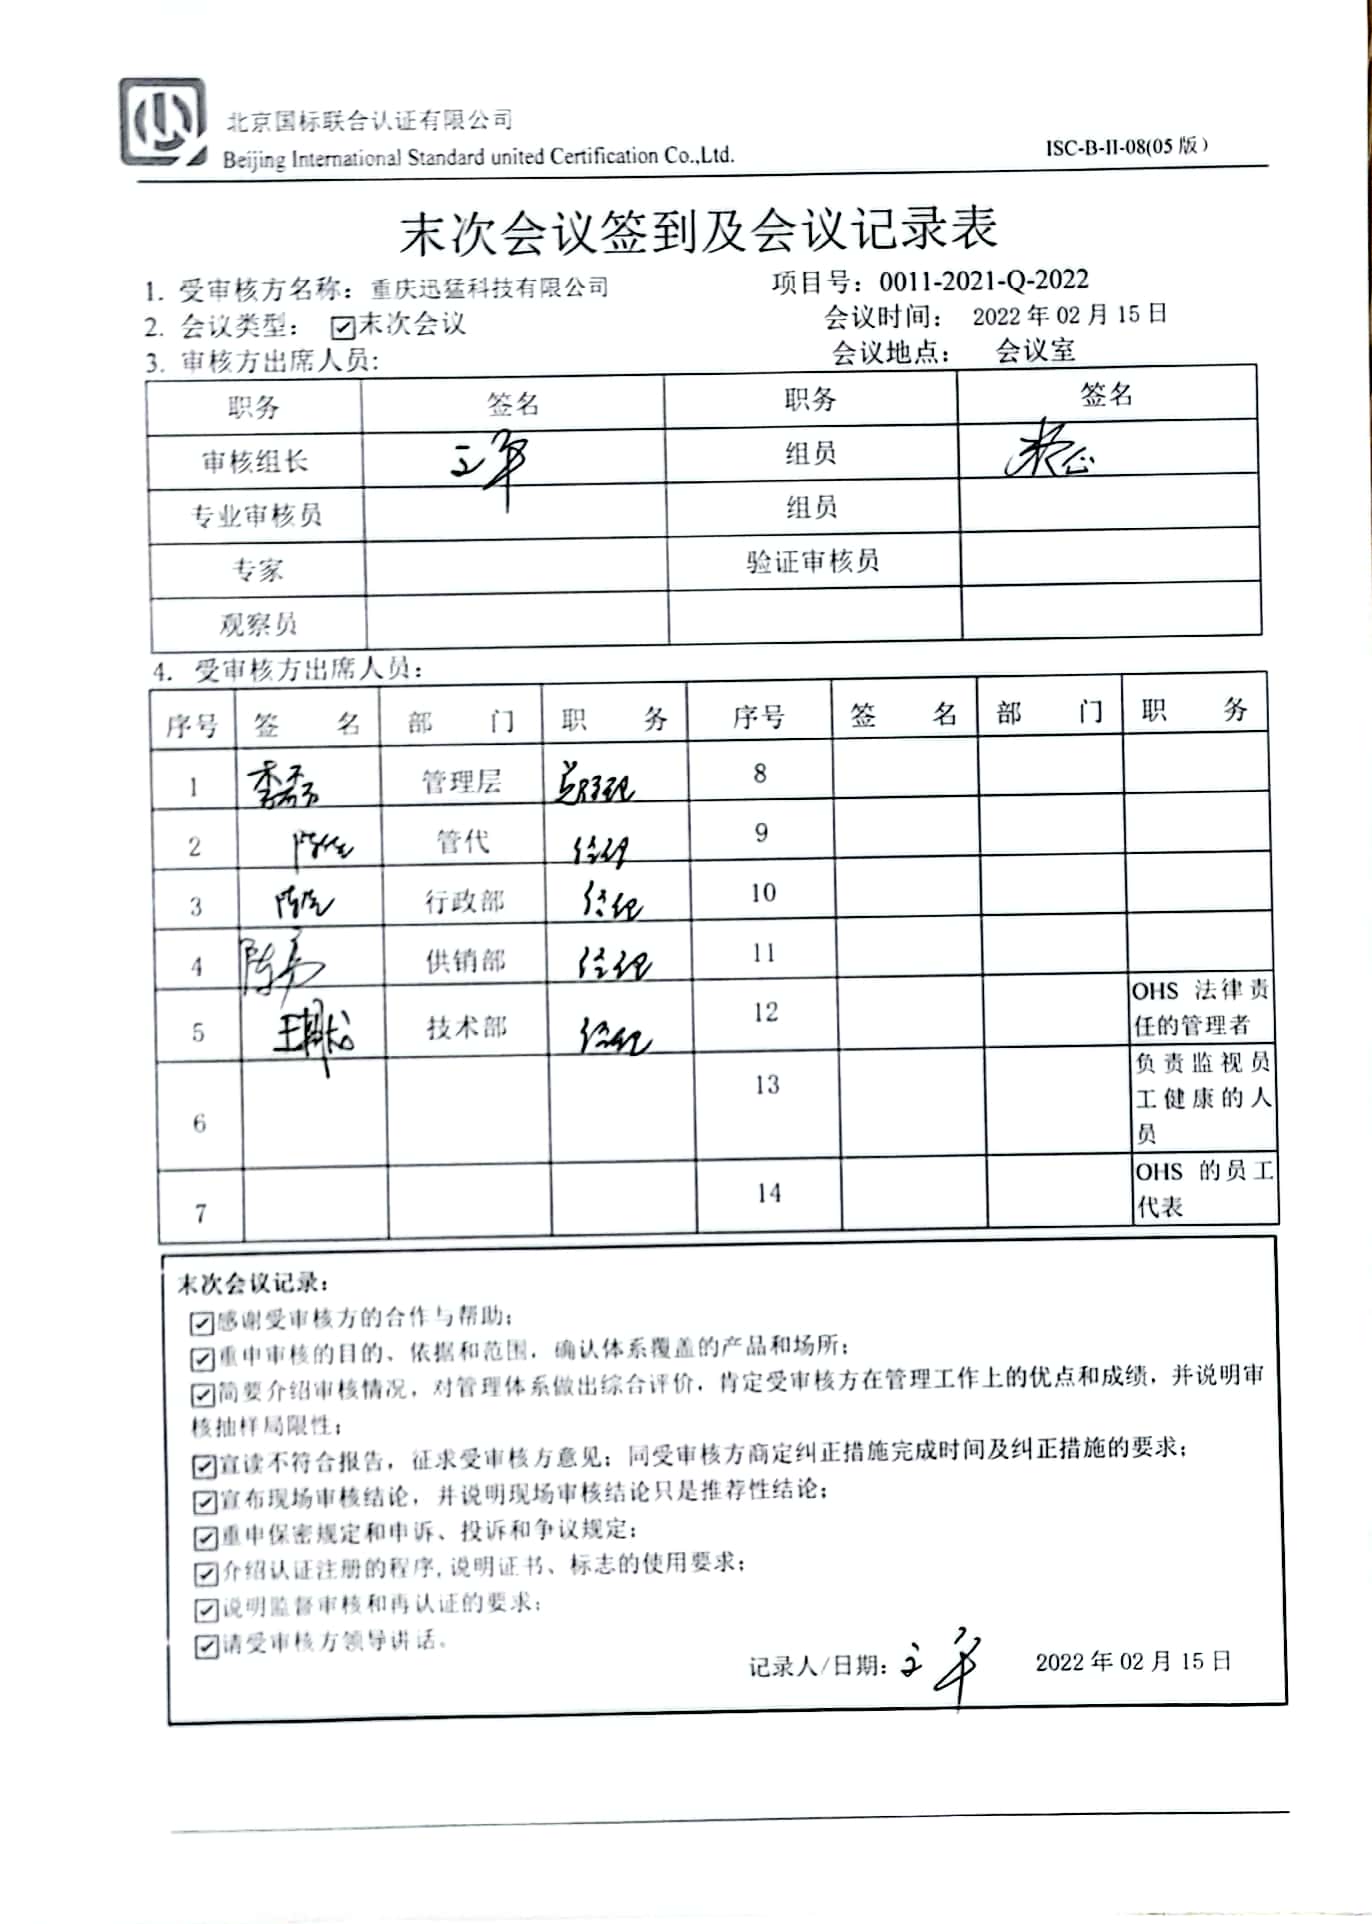 北京国标联合认证有限公司
Beijing International Standard united Certification Co.,Ltd.
ISC-B-II-08(05版)
末次会议签到及会议记录表
1. 受审核方名称：重庆迅猛科技有限公司 项目号：0011-2021-Q-2022
2. 会议类型： ☑末次会议 会议时间： 2022年02月15日
3. 审核方出席人员: 会议地点： 会议室
职务 签名 职务 签名
审核组长 组员
专业审核员 组员
专家 验证审核员
观察员
4. 受审核方出席人员：
序号 签 名 部 门 职 务 序号 签 名 部 门 职 务
1 管理层 总经理 8
2 管代 经理 9
3 行政部 经理 10
4 供销部 经理 11
5 技术部 经理 12 OHS 法律责
任的管理者
6 13 负责监视员
工健康的人
员
7 14 OHS 的员工
代表
末次会议记录：
☑感谢受审核方的合作与帮助；
☑重申审核的目的、依据和范围，确认体系覆盖的产品和场所；
☑简要介绍审核情况，对管理体系做出综合评价，肯定受审核方在管理工作上的优点和成绩，并说明审
核抽样局限性；
☑宣读不符合报告，征求受审核方意见；同受审核方商定纠正措施完成时间及纠正措施的要求；
☑宣布现场审核结论，并说明现场审核结论只是推荐性结论；
☑重申保密规定和申诉、投诉和争议规定；
☑介绍认证注册的程序,说明证书、标志的使用要求；
☑说明监督审核和再认证的要求；
☑请受审核方领导讲话。
记录人/日期： 2022年02月15日